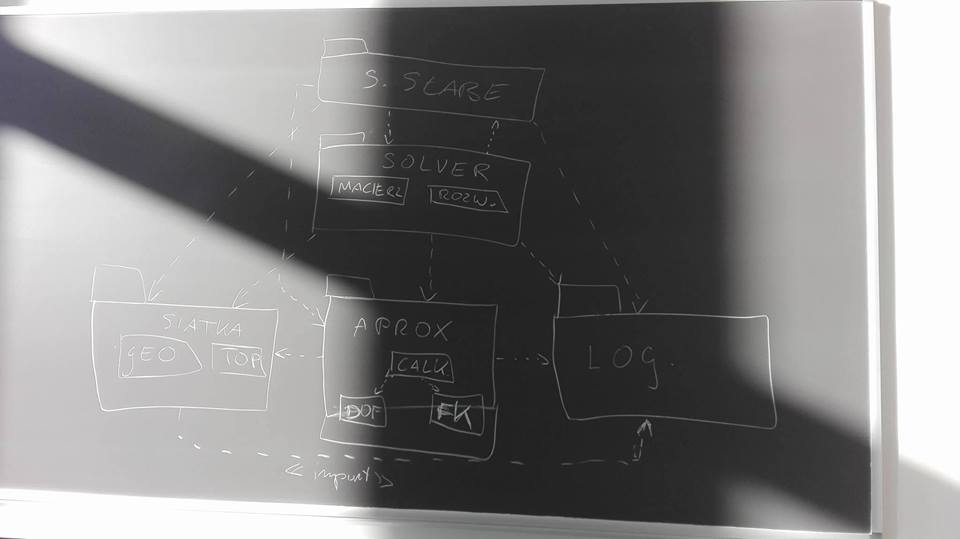 S. SŁABE
SOLVER
MACIERZ
ROZW.
SIATKA
GEO
TOP
APROX
CAŁK.
DOF
FK
LOG.
<< import >>